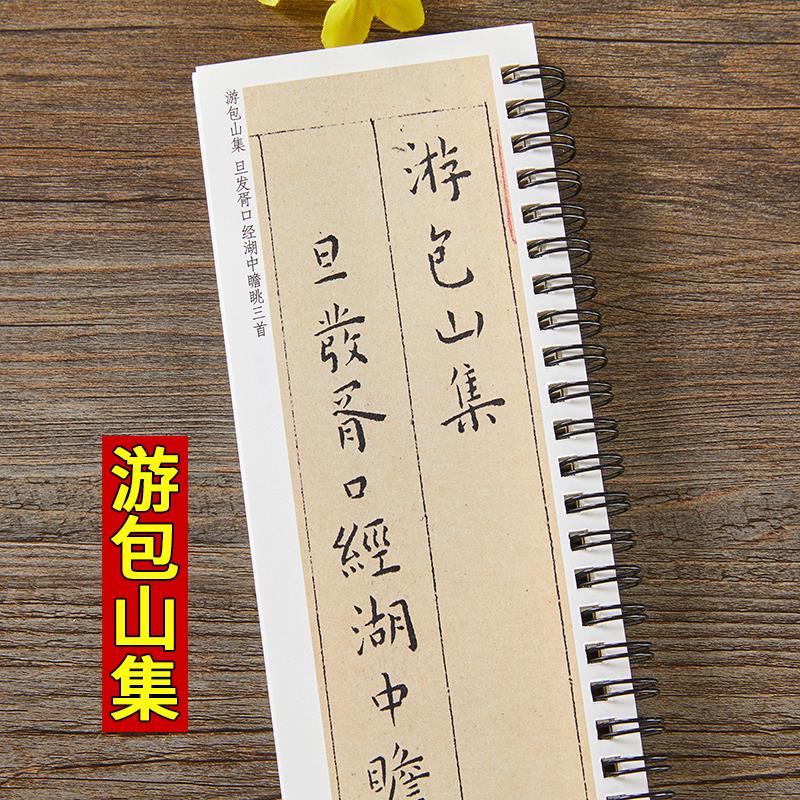 游包山集
旦發胥口經湖中瞻
游包山集 旦发胥口 经湖中瞻眺三首
游包山集